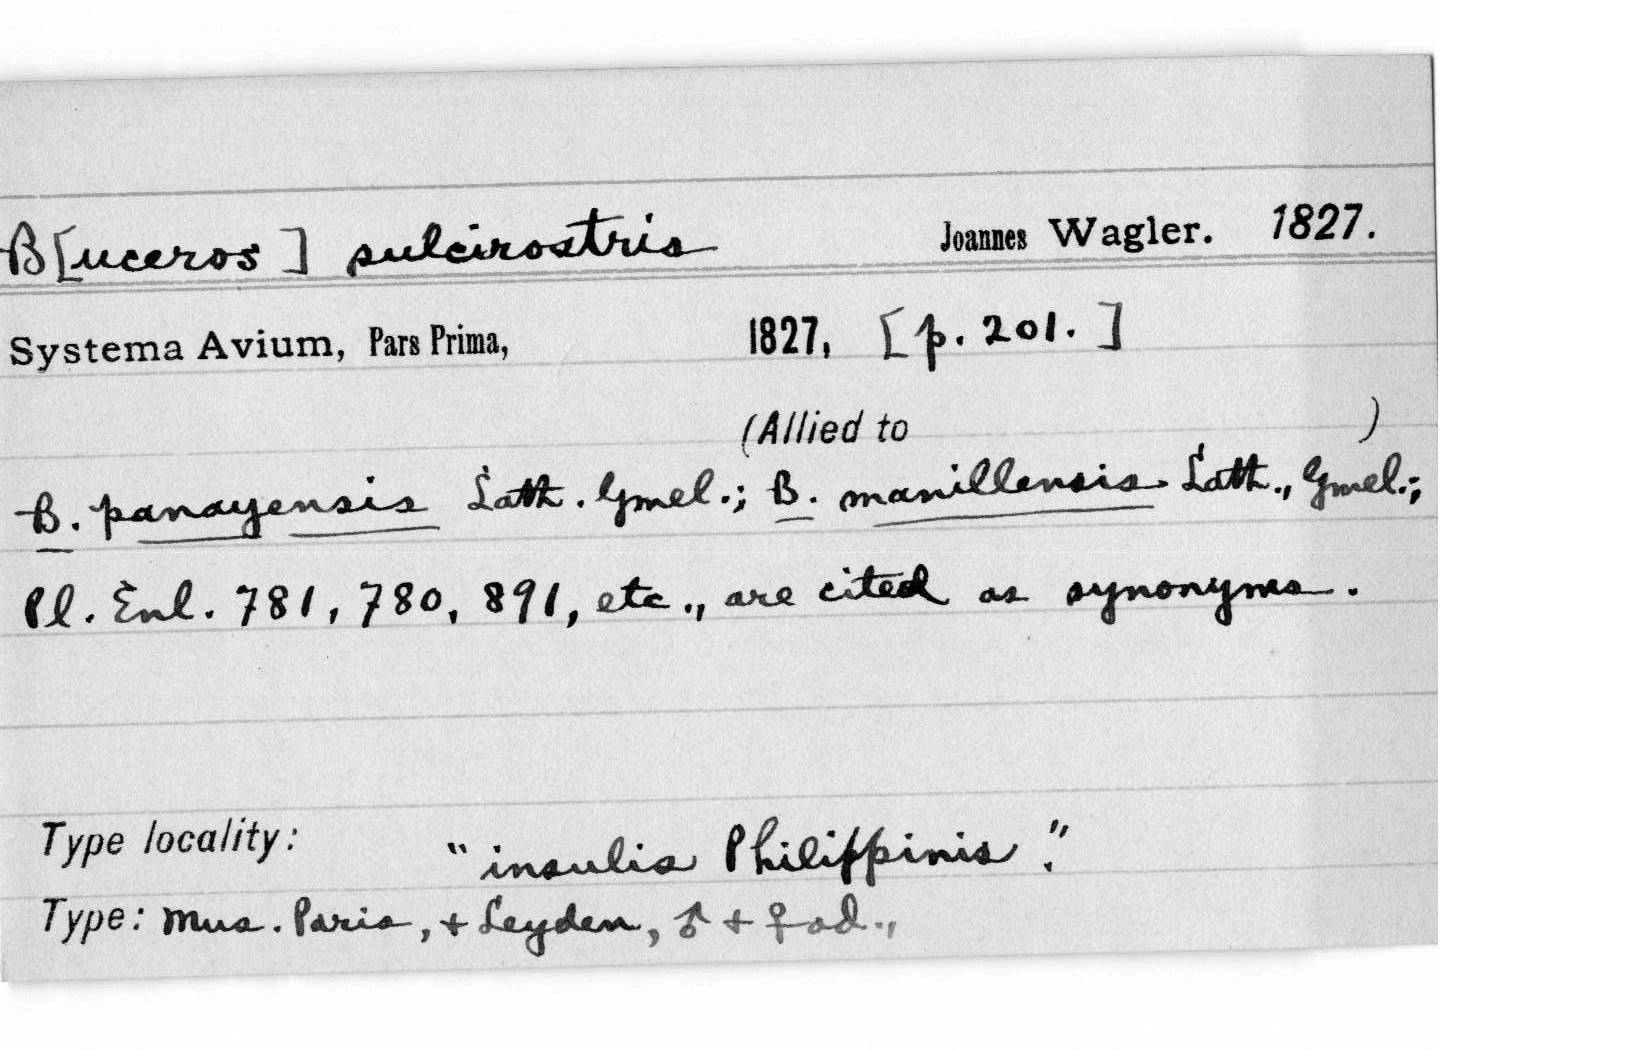 B[uceros] sulcirostris Joannes Wagler. 1827.
Systema Avium, Pars Prima, 1827, [p. 201.]
(Allied to )
B. panayensis Lath. Gmel.; B. manillensis Lath., Gmel.;
Pl. Enl. 781, 780, 891, etc., are cited as synonyms.
Type locality: "insulis Philippinis."
Type: Mus. Paris, + Leyden, ♂ + ♀ ad.,